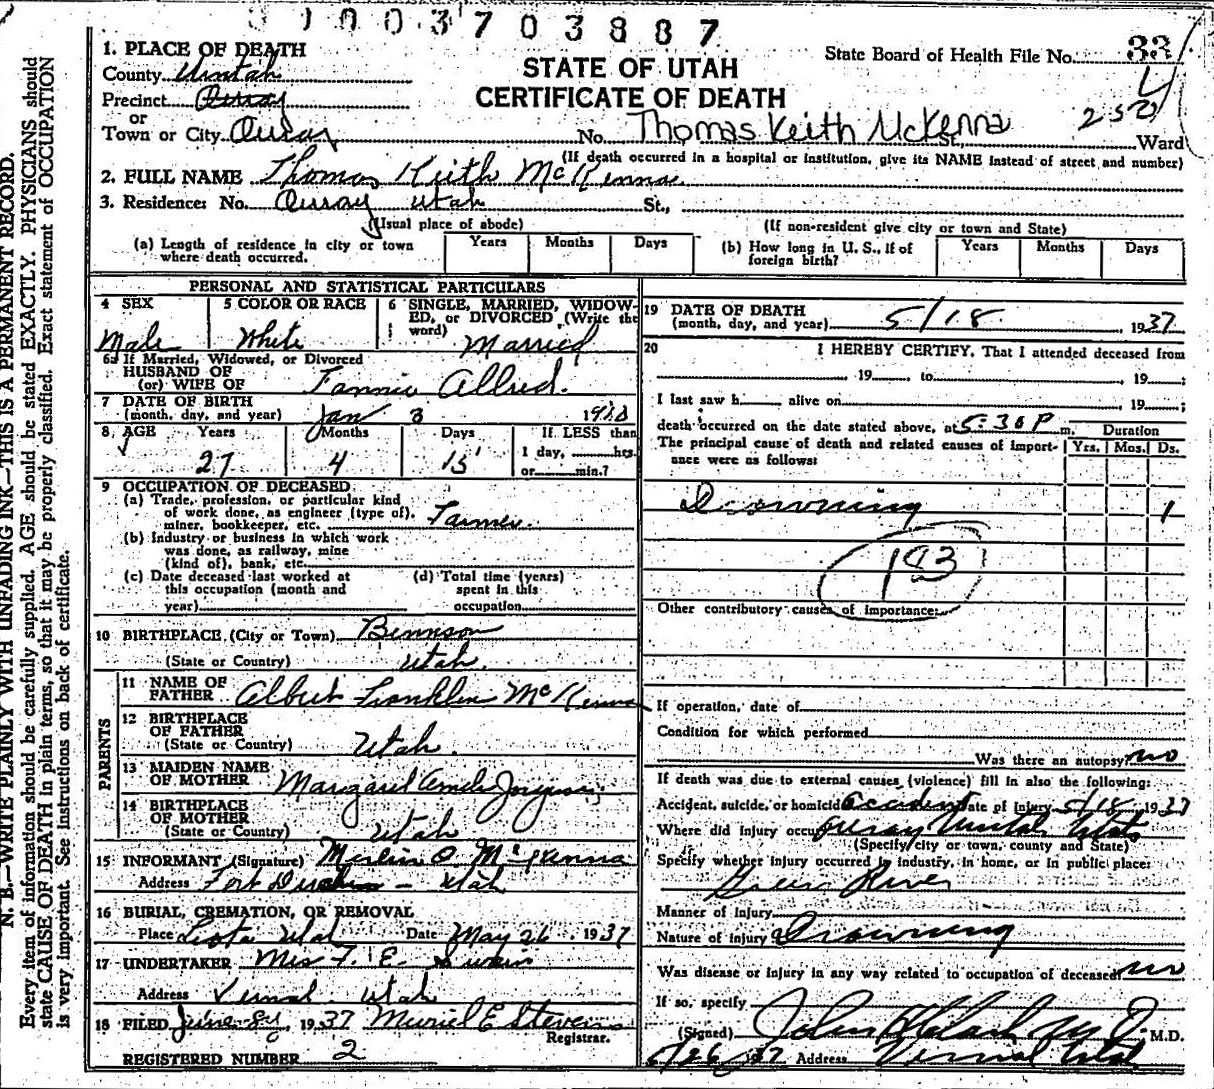 1003703887
1. PLACE OF DEATH
County Uintah
Precinct Ouray
or
Town or City Ouray No. Thomas Keith McKenna St., Ward
STATE OF UTAH
CERTIFICATE OF DEATH
State Board of Health File No. 33
(If death occurred in a hospital or institution, give its NAME instead of street and number)
2. FULL NAME Thomas Keith McKenna
3. Residence: No. Ouray Utah St.,
(Usual place of abode) (If non-resident give city or town and State)
(a) Length of residence in city or town where death occurred. Years Months Days
(b) How long in U. S., if of foreign birth? Years Months Days
PERSONAL AND STATISTICAL PARTICULARS
4 SEX Male
5 COLOR OR RACE White
6 SINGLE, MARRIED, WIDOWED, or DIVORCED (Write the word) Married
6a If Married, Widowed, or Divorced
HUSBAND OF
(or) WIFE OF Fannie Allred.
7 DATE OF BIRTH
(month, day, and year) Jan 3 1910
8 AGE Years 27 Months 4 Days 15 If LESS than
1 day, hrs.
or min.?
9 OCCUPATION OF DECEASED
(a) Trade, profession, or particular kind
of work done, as engineer (type of),
miner, bookkeeper, etc. Farmer.
(b) Industry or business in which work
was done, as railway, mine
(kind of), bank, etc.
(c) Date deceased last worked at
this occupation (month and
year)
(d) Total time (years)
spent in this
occupation
10 BIRTHPLACE (City or Town) Bennson
(State or Country) Utah.
PARENTS
11 NAME OF
FATHER Albert Franklin McKenna
12 BIRTHPLACE
OF FATHER
(State or Country) Utah.
13 MAIDEN NAME
OF MOTHER Margaret
14 BIRTHPLACE
OF MOTHER
(State or Country) Utah
15 INFORMANT (Signature) Merlin O. McKenna
Address Fort Duchesne - Utah
16 BURIAL, CREMATION, OR REMOVAL
Place Leota Utah Date May 26, 1937
17 UNDERTAKER Mrs F. E. Swain
Address Vernal Utah
18 FILED June 8, 1937 Muriel E Stevens
Registrar.
REGISTERED NUMBER 2
19 DATE OF DEATH
(month, day, and year) 5/18, 1937
20 I HEREBY CERTIFY, That I attended deceased from
, 19 to , 19 ;
I last saw h alive on , 19 ;
death occurred on the date stated above, at 5:30 P m. Duration
The principal cause of death and related causes of importance were as follows: Yrs. Mos. Ds.
Drowning 1
183
Other contributory causes of importance:
If operation, date of
Condition for which performed
Was there an autopsy? no
If death was due to external causes (violence) fill in also the following:
Accident, suicide, or homicide accident Date of injury 5/18 1937
Where did injury occur Ouray Uintah Utah
(Specify city or town, county and State)
Specify whether injury occurred in industry, in home, or in public place:
Green River
Manner of injury
Nature of injury Drowning
Was disease or injury in any way related to occupation of deceased? no
If so, specify
(Signed) John M.D.
5/26/37 Address Vernal Utah
N. B.—WRITE PLAINLY WITH UNFADING INK—THIS IS A PERMANENT RECORD.
Every item of information should be carefully supplied. AGE should be stated EXACTLY. PHYSICIANS should
state CAUSE OF DEATH in plain terms, so that it may be properly classified. Exact statement of OCCUPATION
is very important. See instructions on back of certificate.